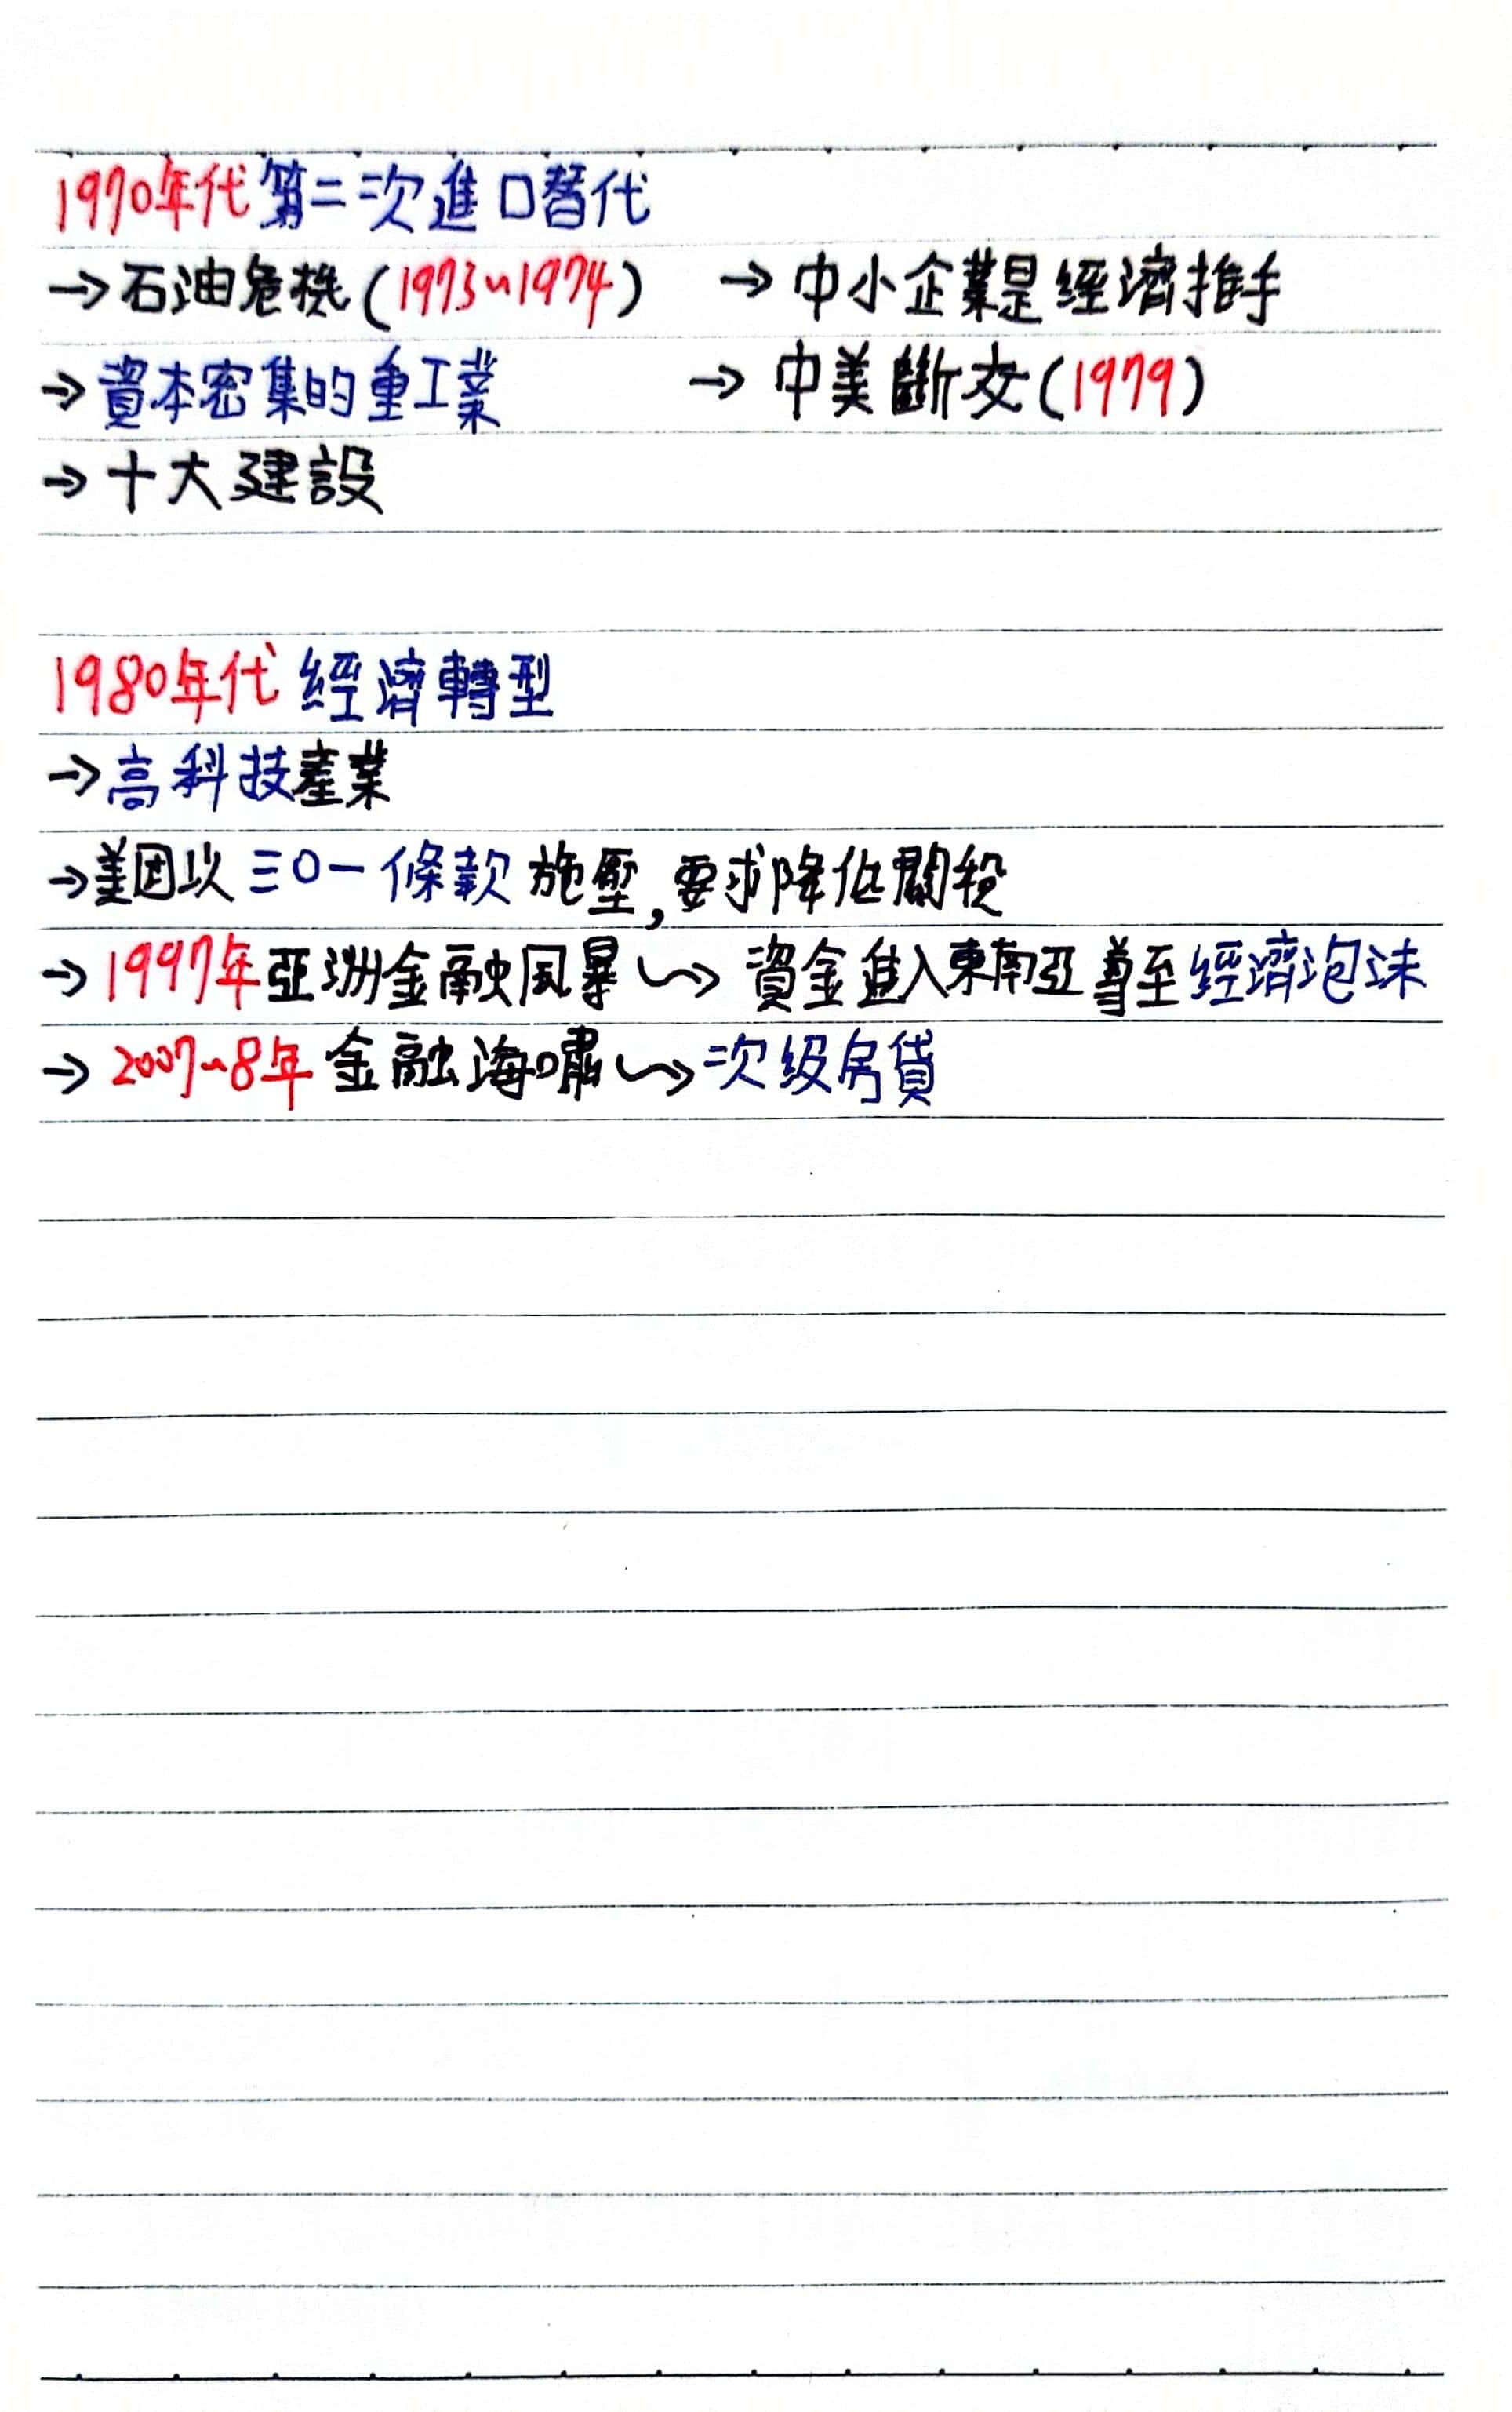 1970年代 第二次進口替代
→石油危機(1973~1974) →中小企業是經濟推手
→資本密集的重工業 →中美斷交(1979)
→十大建設
1980年代 經濟轉型
→高科技產業
→美國以三〇一條款施壓,要求降低關稅
→1997年亞洲金融風暴⤳資金進入東南亞導至經濟泡沫
→2007~8年金融海嘯⤳次級房貸